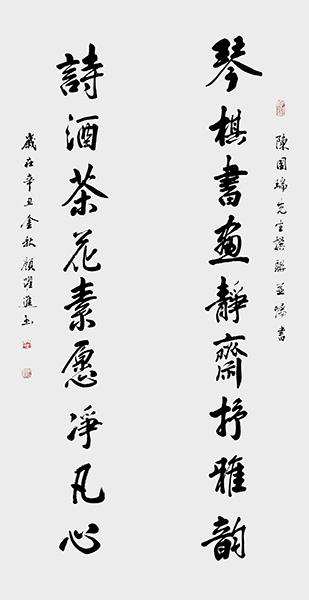 陳國瑞先生撰聯並囑書
琴棋書畫靜齋抒雅韻
詩酒茶花素愿淨凡心
歲在辛丑金秋顧躍進書